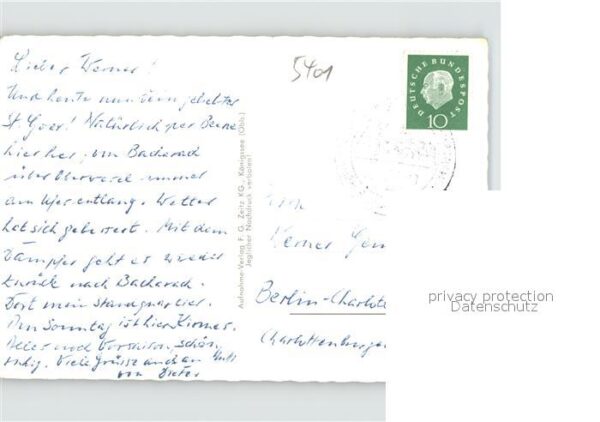 Lieber Werner!
Und heute nun dein geliebter
St. Goar! Natürlich per Beine
hierher, von Bacharach
über Oberwesel immer
am Ufer entlang. Wetter
hat sich gebessert. Mit dem
Dampfer geht es wieder
zurück nach Bacharach.
Dort mein Standquartier.
Am Sonntag ist hier Kirmes.
Alles noch Vorsaison, schön
ruhig. Viele Grüsse auch an
von Dieter
Aufnahme-Verlag F. G. Zeitz KG., Königssee (Obb.)
Jeglicher Nachdruck verboten!
5401
DEUTSCHE BUNDESPOST
10
Herrn
Werner
Berlin-Charlotte
Charlottenburger
privacy protection
Datenschutz